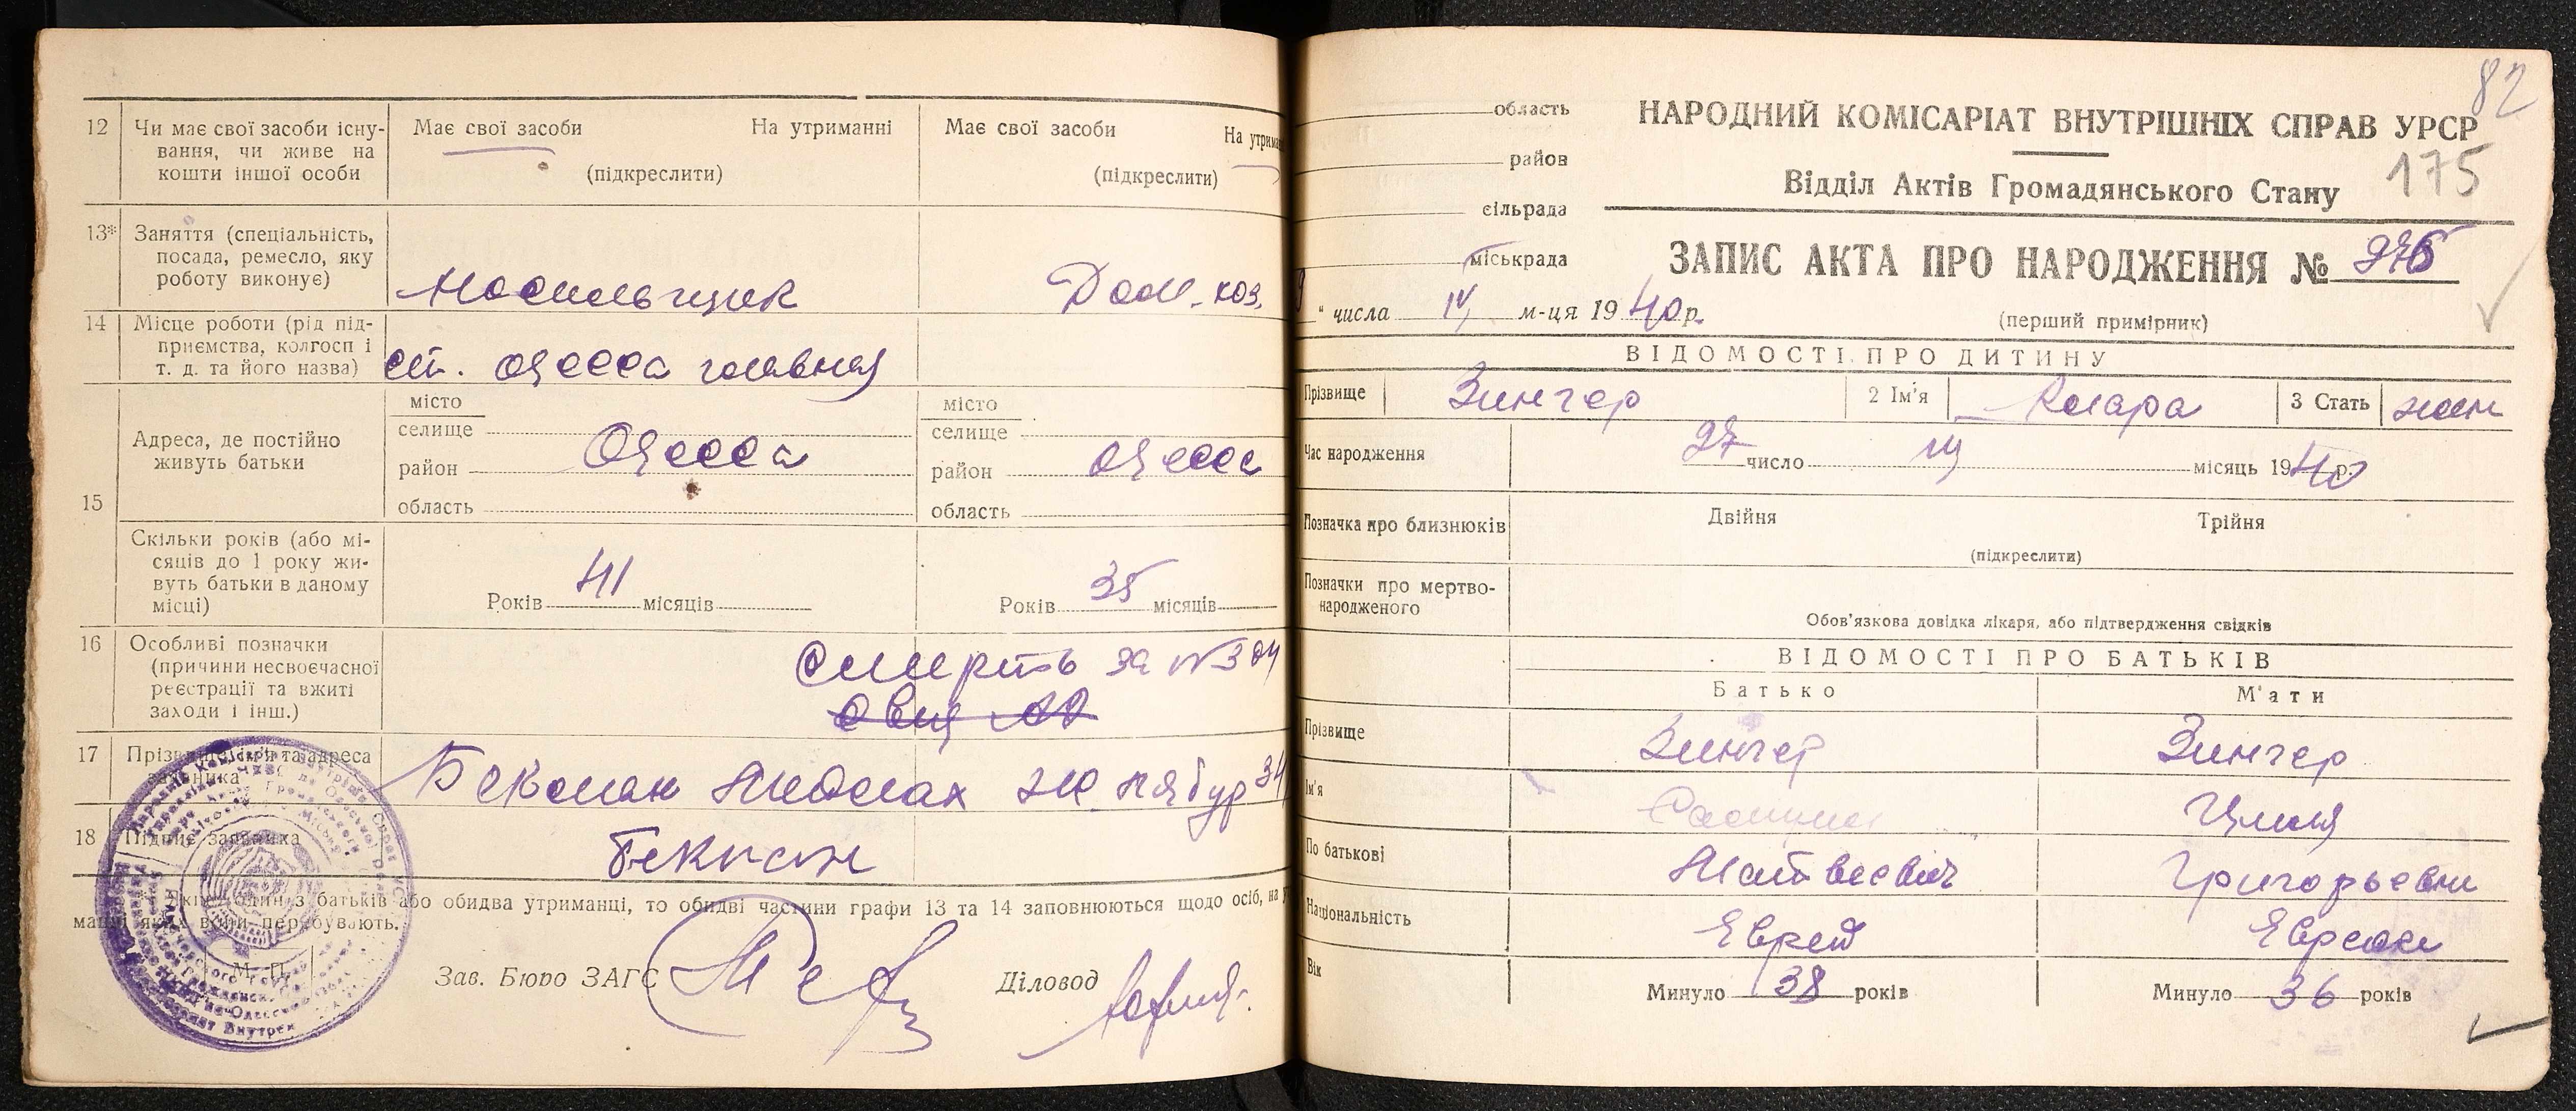 12 Чи має свої засоби існу-
вання, чи живе на
кошти іншої особи
Має свої засоби На утриманні
(підкреслити)
Має свої засоби На утрима
(підкреслити)
13* Заняття (спеціальність,
посада, ремесло, яку
роботу виконує)
Носильщик
Дом. хоз.
14 Місце роботи (рід під-
приємства, колгосп і
т. д. та його назва)
ст. Одесса главная
15 Адреса, де постійно
живуть батьки
місто
селище
район
область
Одесса
місто
селище
район
область
Одесса
Скільки років (або мі-
сяців до 1 року жи-
вуть батьки в даному
місці)
Років 41 місяців
Років 35 місяців
16 Особливі позначки
(причини несвоєчасної
реєстрації та вжиті
заходи і інш.)
Смерть за №
17 Прізвище, ім'я та адреса
заявника
18 Підпис заявника
Якщо один з батьків або обидва утриманці, то обидві частини графи 13 та 14 заповнюються щодо осіб, на
яких вони перебувають.
М. П.
Зав. Бюро ЗАГС
Діловод
82
175
область
район
сільрада
міськрада
НАРОДНИЙ КОМІСАРІАТ ВНУТРІШНІХ СПРАВ УРСР
Відділ Актів Громадянського Стану
ЗАПИС АКТА ПРО НАРОДЖЕННЯ №
9 " числа IV м-ця 1940 р.
(перший примірник)
ВІДОМОСТІ ПРО ДИТИНУ
Прізвище Зингер 2 Ім'я Клара 3 Стать жен
Час народження 27 число III місяць 1940 р.
Позначка про близнюків Двійня Трійня
(підкреслити)
Позначки про мертво-
народженого
Обов'язкова довідка лікаря, або підтвердження свідків
ВІДОМОСТІ ПРО БАТЬКІВ
Батько М'ати
Прізвище Зингер Зингер
Ім'я Циля
По батькові Матвеевич Григорьевна
Національність Еврей Еврейка
Вік Минуло 38 років Минуло 36 років